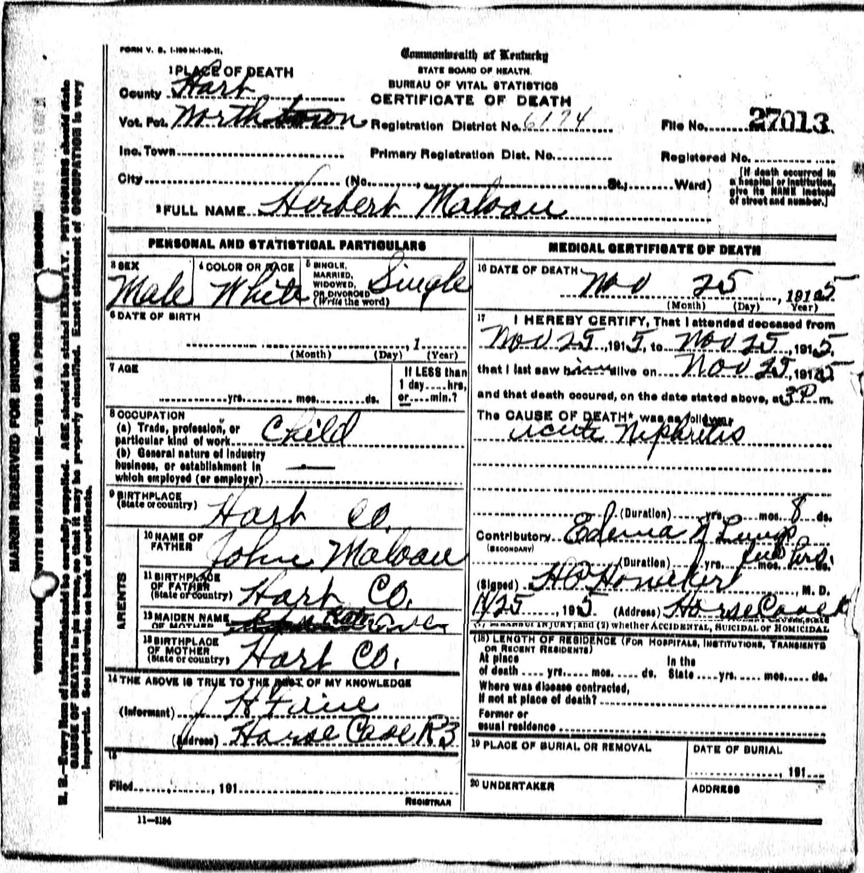 FORM V. S. 1-100 M-1-20-11.
Commonwealth of Kentucky
STATE BOARD OF HEALTH.
BUREAU OF VITAL STATISTICS
CERTIFICATE OF DEATH
1 PLACE OF DEATH
County Hart
Vot. Pct. North town Registration District No. 6194 File No. 27013
Inc. Town Primary Registration Dist. No. Registered No.
City (No. , St.; Ward)
[If death occurred in a hospital or institution, give its NAME instead of street and number.]
2 FULL NAME Herbert Malvau
PERSONAL AND STATISTICAL PARTICULARS
3 SEX Male
4 COLOR OR RACE White
5 SINGLE, MARRIED, WIDOWED, OR DIVORCED (Write the word) Single
6 DATE OF BIRTH
, 1
(Month) (Day) (Year)
7 AGE
yrs. mos. ds.
If LESS than 1 day hrs. or min.?
8 OCCUPATION
(a) Trade, profession, or particular kind of work Child
(b) General nature of industry business, or establishment in which employed (or employer) —
9 BIRTHPLACE (State or country) Hart Co.
PARENTS
10 NAME OF FATHER John Malvau
11 BIRTHPLACE OF FATHER (State or country) Hart Co.
12 MAIDEN NAME OF MOTHER
13 BIRTHPLACE OF MOTHER (State or country) Hart Co.
14 THE ABOVE IS TRUE TO THE BEST OF MY KNOWLEDGE
(Informant) J H
(Address) Horse Cave R3
15
Filed , 191
REGISTRAR
11—5184
MEDICAL CERTIFICATE OF DEATH
16 DATE OF DEATH Nov 25, 1915
(Month) (Day) Year)
17 I HEREBY CERTIFY, That I attended deceased from
Nov 25, 1915, to Nov 25, 1915,
that I last saw him alive on Nov 25, 1915
and that death occured, on the date stated above, at 3P m.
The CAUSE OF DEATH* was as follows:
acute Niphritis
(Duration) yrs. mos. 8 ds.
Contributory Edema of Lungs
(SECONDARY)
(Duration) yrs. mos. ds.
(Signed) , M. D.
11/25 1915 (Address) Horse Cave K
INJURY; and (2) whether ACCIDENTAL, SUICIDAL OR HOMICIDAL
(18) LENGTH OF RESIDENCE (FOR HOSPITALS, INSTITUTIONS, TRANSIENTS OR RECENT RESIDENTS)
At place of death yrs. mos. ds. In the State yrs. mos. ds.
Where was disease contracted, if not at place of death?
Former or usual residence
19 PLACE OF BURIAL OR REMOVAL
DATE OF BURIAL
, 191
20 UNDERTAKER
ADDRESS
MARGIN RESERVED FOR BINDING
WITH UNFADING INK—THIS IS A PERMANENT RECORD
N. B.—Every item of information should be carefully supplied. AGE should be stated EXACTLY. PHYSICIANS should state
CAUSE OF DEATH in plain terms, so that it may be properly classified. Exact statement of OCCUPATION is very
important. See instructions on back of certificate.